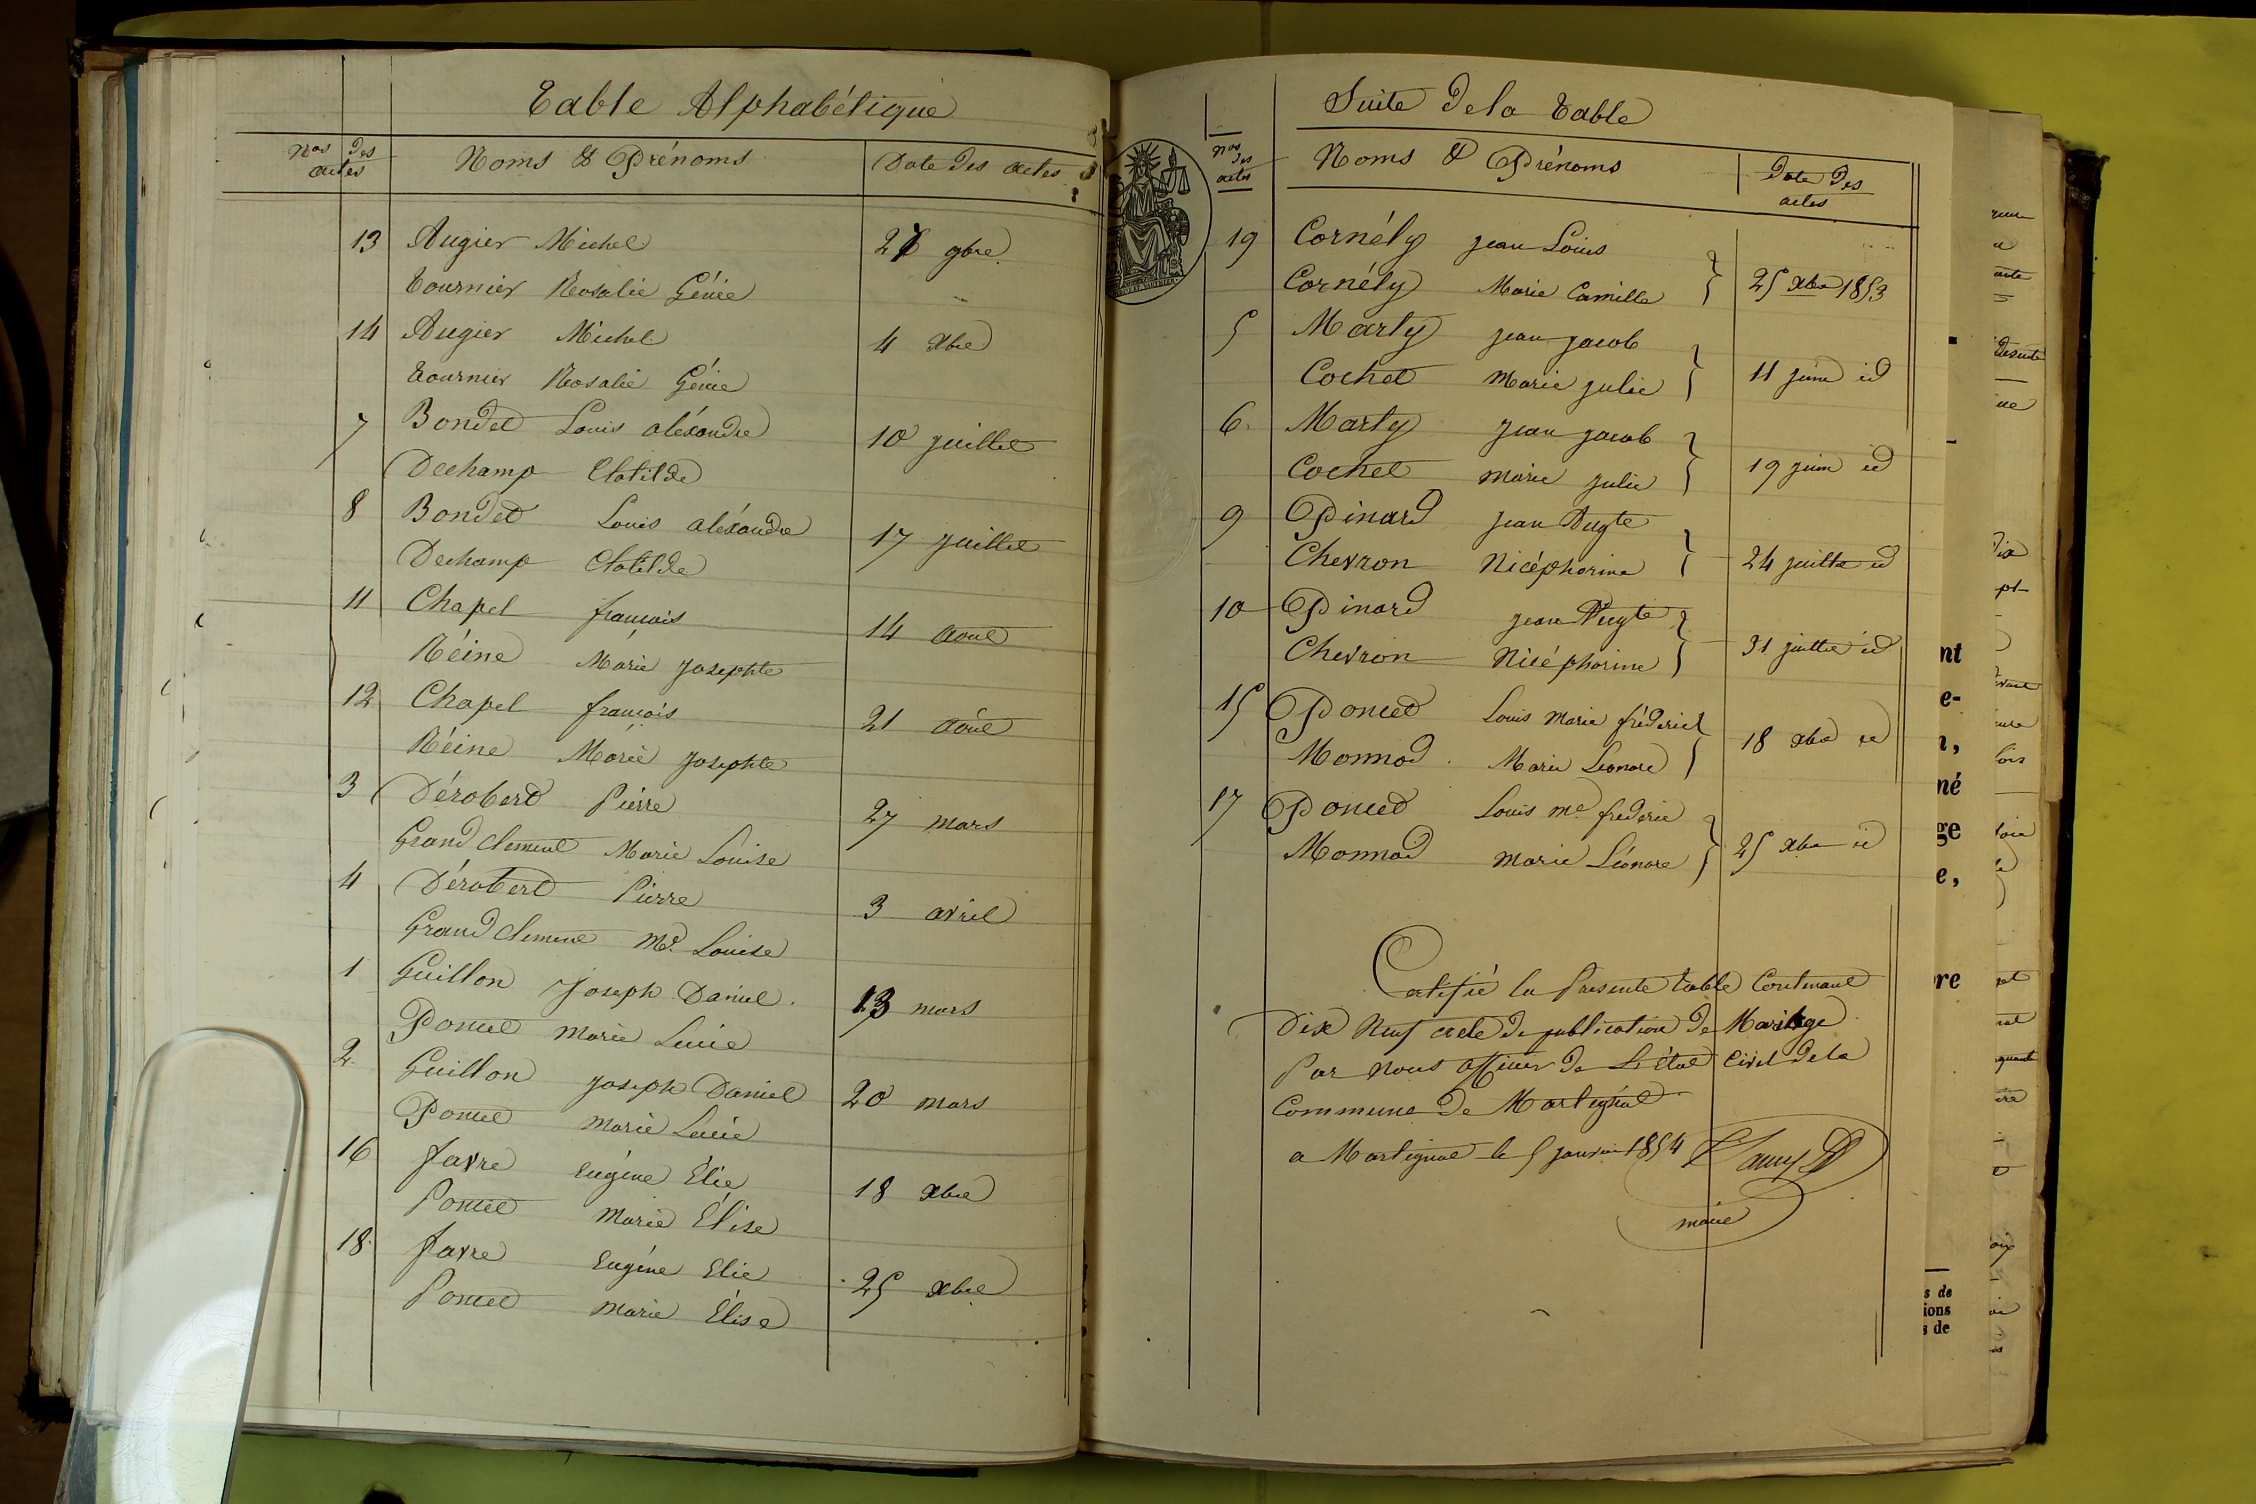 Table Alphabétique
Nos des actes
Noms & Prénoms
Date des actes
13 Augier Michel
27 9bre
Tournier Rosalie Génie
14 Augier Michel
4 Xbre
Tournier Rosalie Génie
7 Bondet Louis aléxandre
10 juillet
Dechamp Clotilde
8 Bondet Louis aléxandre
17 juillet
Dechamp Clotilde
11 Chapel françois
14 aout
Réine Marie Josephte
12 Chapel françois
21 août
Réine Marie Josephte
3 Dérobert Pierre
27 mars
Grand Clement Marie Louise
4 Dérobert Pierre
3 avril
Grand Clement Me Louise
1 Guillon Joseph Daniel
13 mars
Poncet Marie Lucie
2 Guillon Joseph Daniel
20 mars
Poncet Marie Lucie
16 favre Eugène Élie
18 Xbre
Poncet Marie Élise
18 favre Eugène Elie
25 Xbre
Poncet Marie Élise
Suite De la Table
Nos des actes
Noms & Prénoms
Date Des actes
19 Cornély jean Louis
Cornély Marie Camille
25 Xbre 1853
5 Marty jean jacob
Cochet Marie julie
11 juin id
6 Marty jean jacob
Cochet marie julie
19 juin id
9 Pinard jean Augte
Chevron Nicéphorine
24 juillet id
10 Pinard jean Augte
Chevron Nicéphorine
31 juillet id
15 Poncet Louis Marie fréderic
Monnod Marie Léonore
18 Xbre id
17 Poncet Louis me frederic
Monnod Marie Léonore
25 Xbre id
Certifié la Presente table Contenant
Dix Neuf acte de publication De Mariage
Par nous officier De L'état Civil de la
Commune De Martignat
a Martignat le 5 janvier 1854
maire
nt
e-
n,
né
ge
e,
re
s de
ions
s de